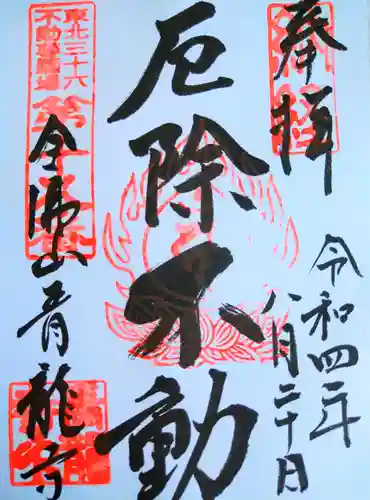 奉拝
令和四年
八月二十日
厄除不動
東北三十六
不動尊霊場
金沸山青龍寺